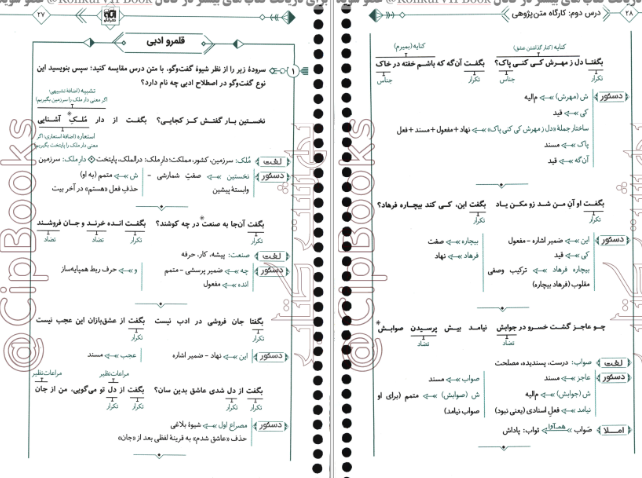 برای دریافت کتاب های بیشتر در کانال KonkurVII Book@ عضو شوید
۲۷
قلمرو ادبی
۱
سرودهٔ زیر را از نظر شیوهٔ گفت‌وگو، با متن درس مقایسه کنید؛ سپس بنویسید این
نوع گفت‌وگو در اصطلاح ادبی چه نام دارد؟
تشبیه (اضافهٔ تشبیهی)
اگر معنی دار ملک را سرزمین بگیریم
نخستین بار گفتش کز کجایی؟ بگفت از دار مُلک آشنایی
استعاره (اضافهٔ استعاری) اگر
معنی دار ملک را پایتخت بگیریم
لغت مُلک: سرزمین، کشور، مملکت؛ دار ملک: دارالملک، پایتخت دار ملک: سرزمین
دستور نخستین صفت شمارشی - وابستهٔ پیشین
ش متمم (به او)
حذف فعل «هستم» در آخر بیت
بگفت آن‌جا به صنعت در چه کوشند؟ بگفت انده خرند و جان فروشند
تکرار تضاد تضاد تکرار
لغت صنعت: پیشه، کار، حرفه
دستور چه ضمیر پرسشی - متمم
انده مفعول
و حرف ربط هم‌پایه‌ساز
بگفتا جان فروشی در ادب نیست بگفت از عشق‌بازان این عجب نیست
تکرار تکرار
دستور این نهاد - ضمیر اشاره
عجب مسند
مراعات‌نظیر مراعات‌نظیر
بگفت از دل شدی عاشق بدین سان؟ بگفت از دل تو می‌گویی، من از جان
تکرار تکرار تکرار تکرار
دستور مصراع اول شیوهٔ بلاغی
حذف «عاشق شدم» به قرینهٔ لفظی بعد از «جان»
۲۸
درس دوم: کارگاه متن‌پژوهی
کنایه (کنار گذاشتن عشق) کنایه (بمیرم)
بگفتا دل ز مهرش کی کنی پاک؟ بگفت آن‌گه که باشم خفته در خاک
تکرار جناس تکرار جناس
دستور ش (مهرش) م‌الیه
کی قید
ساختار جملهٔ «دل ز مهرش کی کنی پاک» نهاد + مفعول + مسند + فعل
پاک مسند
آن‌گه قید
بگفت او آنِ من شد زو مکن یاد بگفت این، کی کند بیچاره فرهاد؟
تکرار تکرار
دستور این ضمیر اشاره - مفعول
کی قید
بیچاره فرهاد ترکیب وصفی
مقلوب (فرهاد بیچاره)
بیچاره صفت
فرهاد نهاد
چو عاجز گشت خسرو در جوابش نیامد بیش پرسیدن صوابش
تضاد تضاد
لغت صواب: درست، پسندیده، مصلحت
دستور عاجز مسند
ش (جوابش) م‌الیه
نیامد فعل اسنادی (یعنی نبود)
صواب مسند
ش (صوابش) متمم (برای او
صواب نیامد)
املا صَواب هم‌آوا ثواب: پاداش
@CipBooks
@CipBooks